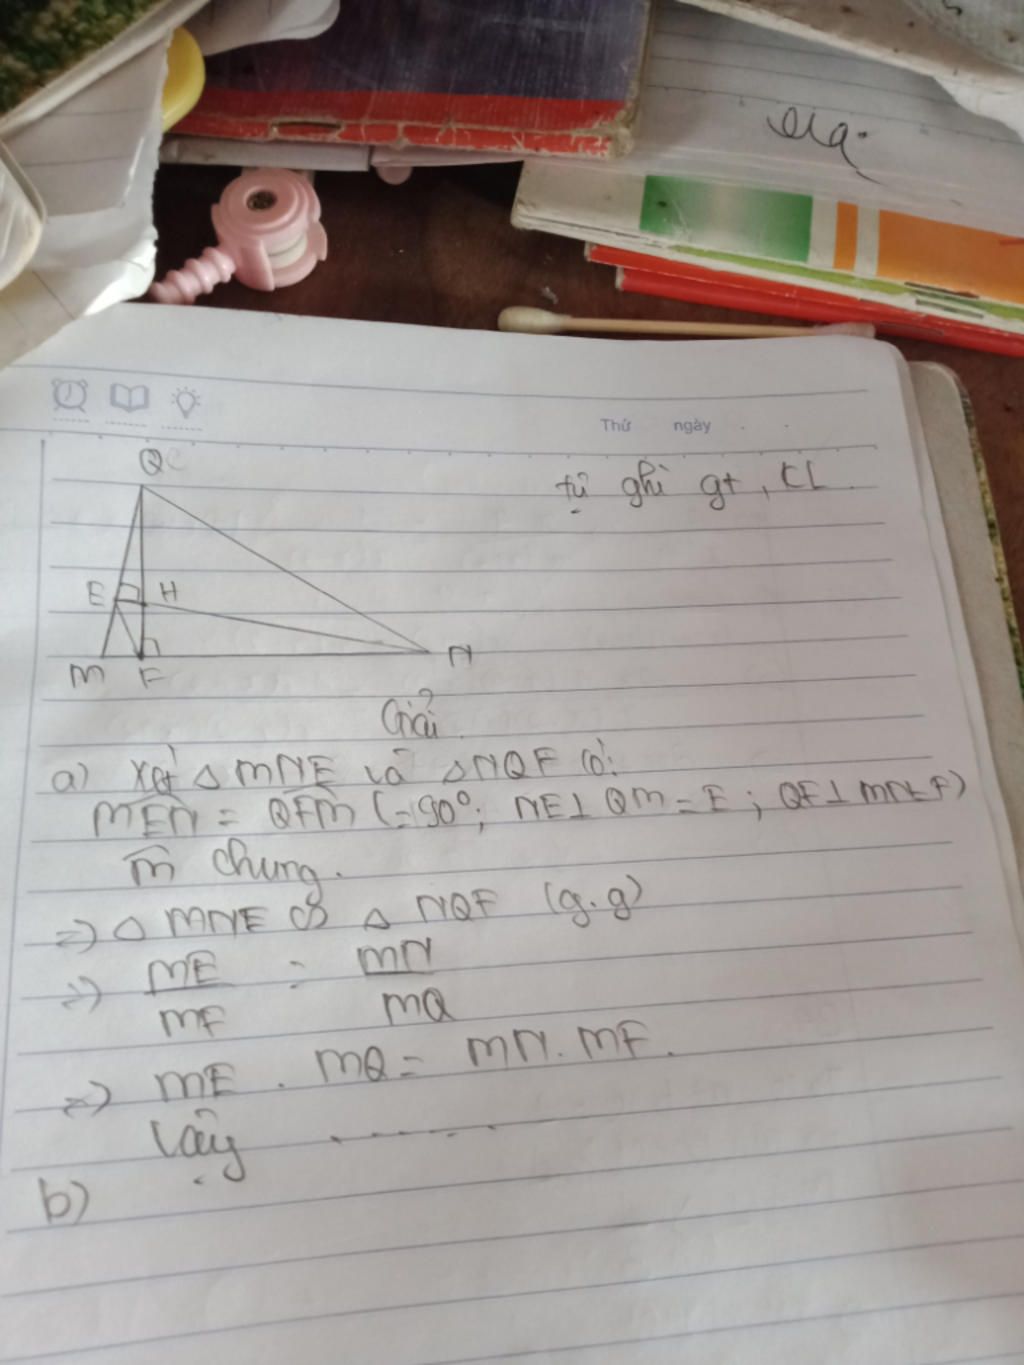 Thứ ngày
Q
tự ghi gt, KL
E H
M F N
Giải
a) Xét △ MNE và △NQF có:
MEN = QFM (=90°; NE⊥ QM = E; QF⊥ MN = F)
M chung.
=> △ MNE ∽ △ NQF (g.g)
=> ME/MF = MN/MQ
=> ME . MQ = MN. MF.
Vậy ......
b)